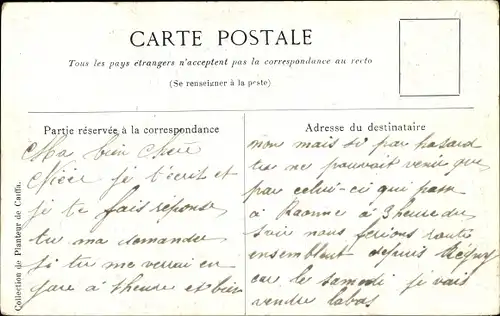 CARTE POSTALE
Tous les pays étrangers n'acceptent pas la correspondance au recto
(Se renseigner à la poste)
Partie réservée à la correspondance
Ma bien chère
Nièce je t'écrit et
je te fais réponse
tu ma demander
si tu me verrai en
gare à heure et bien
Adresse du destinataire
non mais si par hasard
tu ne pouvait venir que
par celui-ci qui passe
à Roanne à 3 heure du
soir nous ferions route
ensemblent depuis Régny
car le samedi je vais
vendre labas
Collection de Planteur de Caïffa.